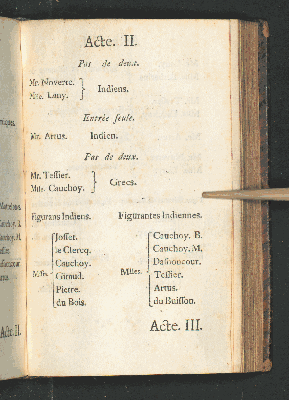 Acte. II.
Pas de deux.
Mr. Noverre.
Mlle. Lany.
Indiens.
Entrée seule.
Mr. Artus. Indien.
Pas de deux.
Mr. Tessier.
Mlle. Cauchoy.
Grecs.
Figurans Indiens. Figurantes Indiennes.
Josset.
le Clercq.
Cauchoy.
Mrs. Giraud.
Pierre.
du Bois.
Cauchoy. B.
Cauchoy. M.
Mlles.
Tessier.
Artus.
du Buisson.
Acte. III.
Acte. II.